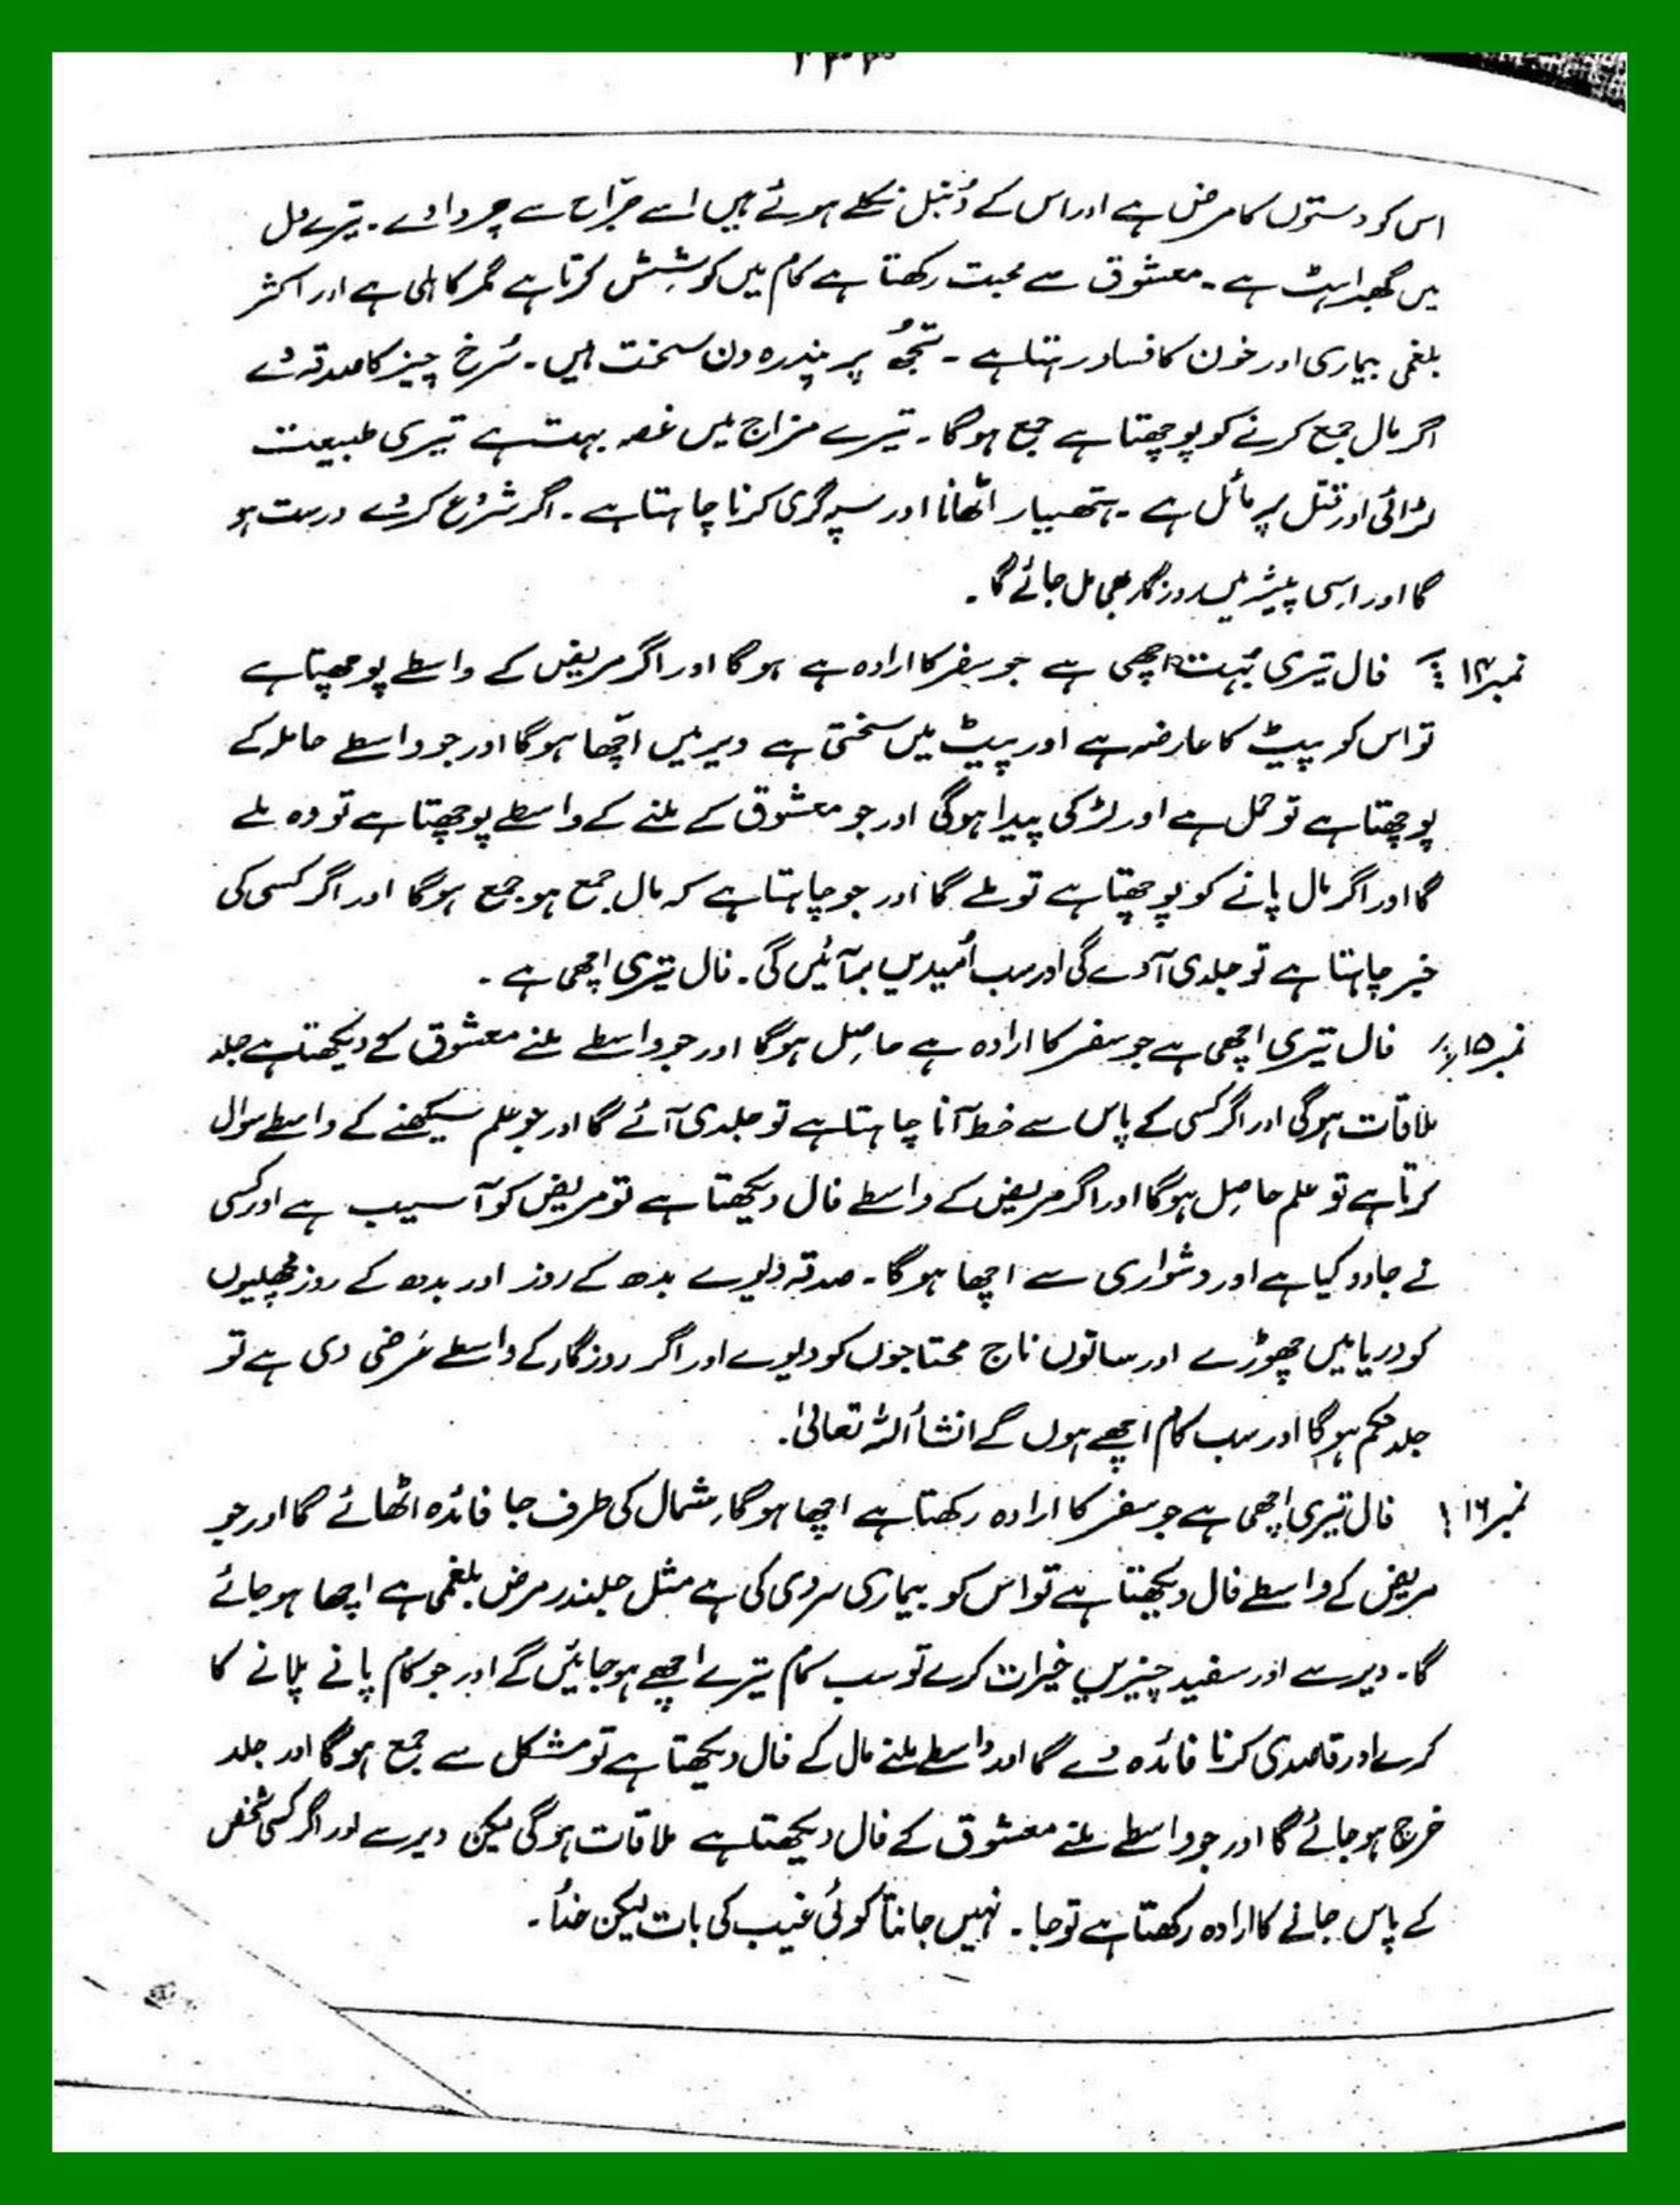 اس کو دستوں کا مرض ہے اور اس کے دُنبل نکلے ہوئے ہیں اسے جرّاح سے چروادے۔ تیرے دل
میں گھبراہٹ ہے۔ معشوق سے محبت رکھتا ہے کام میں کوشِشش کرتا ہے مگر کاہلی ہے اور اکثر
بلغمی بیماری اور خون کا فساد رہتا ہے ۔ تجھُ پر پندرہ دن سخت ہیں۔ سُرخ چیز کا صدقہ دے
اگر مال جمع کرنے کو پوچھتا ہے جمع ہوگا۔ تیرے مزاج میں غصہ بہت ہے تیری طبیعت
لڑائی اور قتل پر مائل ہے ۔ ہتھیار اٹھانا اور سپہ گری کرنا چاہتا ہے ۔ اگر شرُوع کرے درست ہو
گا اور اسِی پیشہ میں روزگار بھی مل جائے گا۔
نمبر ۱۴ فال تیری بُہت اچھی ہے جو سفر کا ارادہ ہے ہوگا اور اگر مریض کے واسطے پوچھتا ہے
تو اس کو پیٹ کا عارضہ ہے اور پیٹ میں سختی ہے دیر میں اچّھا ہوگا اور جو واسطے حاملہ کے
پوچھتا ہے تو حمل ہے اور لڑکی پیدا ہوگی اور جو معشوق کے ملنے کے واسطے پوچھتا ہے تو وہ ملے
گا اور اگر مال پانے کو پوچھتا ہے تو ملے گا اور جو چاہتا ہے کہ مال جمع ہو جمع ہوگا اور اگر کسی کی
خبر چاہتا ہے تو جلدی آوے گی اور سب اُمیدیں برآئیں گی۔ فال تیری اچھی ہے ۔
نمبر ۱۵ فال تیری اچھی ہے جو سفر کا ارادہ ہے حاصِل ہوگا اور جو واسطے ملنے معشوق کے دیکھتا ہے جلد
ملاقات ہوگی اور اگر کسی کے پاس سے خط آنا چاہتا ہے تو جلدی آئے گا اور جو علم سیکھنے کے واسطے سوال
کرتا ہے تو علم حاصِل ہوگا اور اگر مریض کے واسطے فال دیکھتا ہے تو مریض کو آسیب ہے اور کسی
نے جادو کیا ہے اور دشواری سے اچھا ہوگا ۔ صدقہ دیوے بدھ کے روز اور بدھ کے روز مچھلیوں
کو دریا میں چھوڑے اور ساتوں ناج محتاجوں کو دیوے اور اگر روزگار کے واسطے عرضی دی ہے تو
جلد حکم ہوگا اور سب کام اچھے ہوں گے انشأ اللہ تعالیٰ۔
نمبر ۱۶ فال تیری اچھی ہے جو سفر کا ارادہ رکھتا ہے اچھا ہوگا۔ شمال کی طرف جا فائدہ اٹھائے گا اور جو
مریض کے واسطے فال دیکھتا ہے تو اس کو بیماری سردی کی ہے مثل جلندر مرض بلغمی ہے اچھا ہو جائے
گا۔ دیر سے اور سفید چیزیں خیرات کرے تو سب کام تیرے اچھے ہوجائیں گے اور جو کام پانے پلانے کا
کرے اور قاصدی کرنا فائدہ دے گا اور واسطے ملنے مال کے فال دیکھتا ہے تو مشکل سے جمع ہوگا اور جلد
خرچ ہو جائے گا اور جو واسطے ملنے معشوق کے فال دیکھتا ہے ملاقات ہوگی لیکن دیر سے اور اگر کسی شخص
کے پاس جانے کا ارادہ رکھتا ہے تو جا ۔ نہیں جانتا کوئی غیب کی بات لیکن خُدا۔